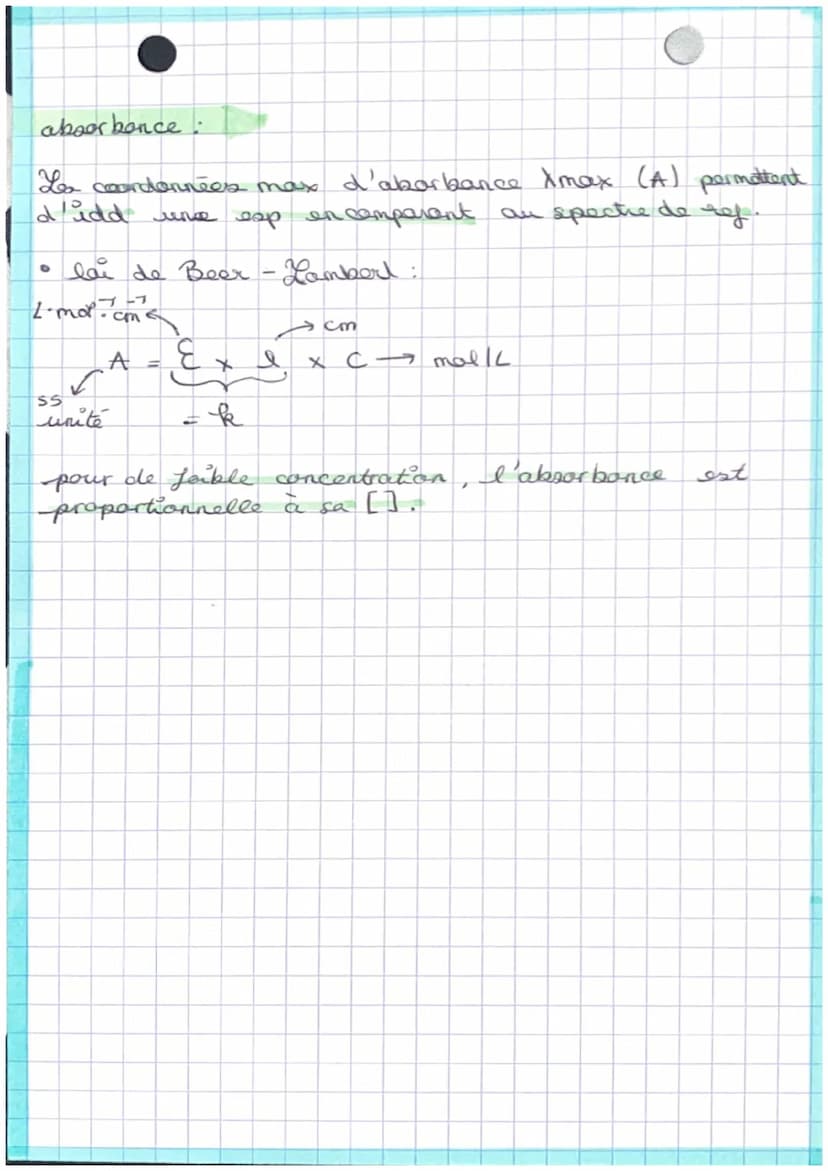 absorbance :
Les coordonnées max d'absorbance λmax (A) permettent
d'idd une esp en comparant au spectre de ref.
• loi de Beer - Lambert :
L·mol⁻¹·cm⁻¹ → cm
A = ε × l × C → mol/L
ss
unité = k
pour de faible concentration, l'absorbance est
proportionnelle à sa [].